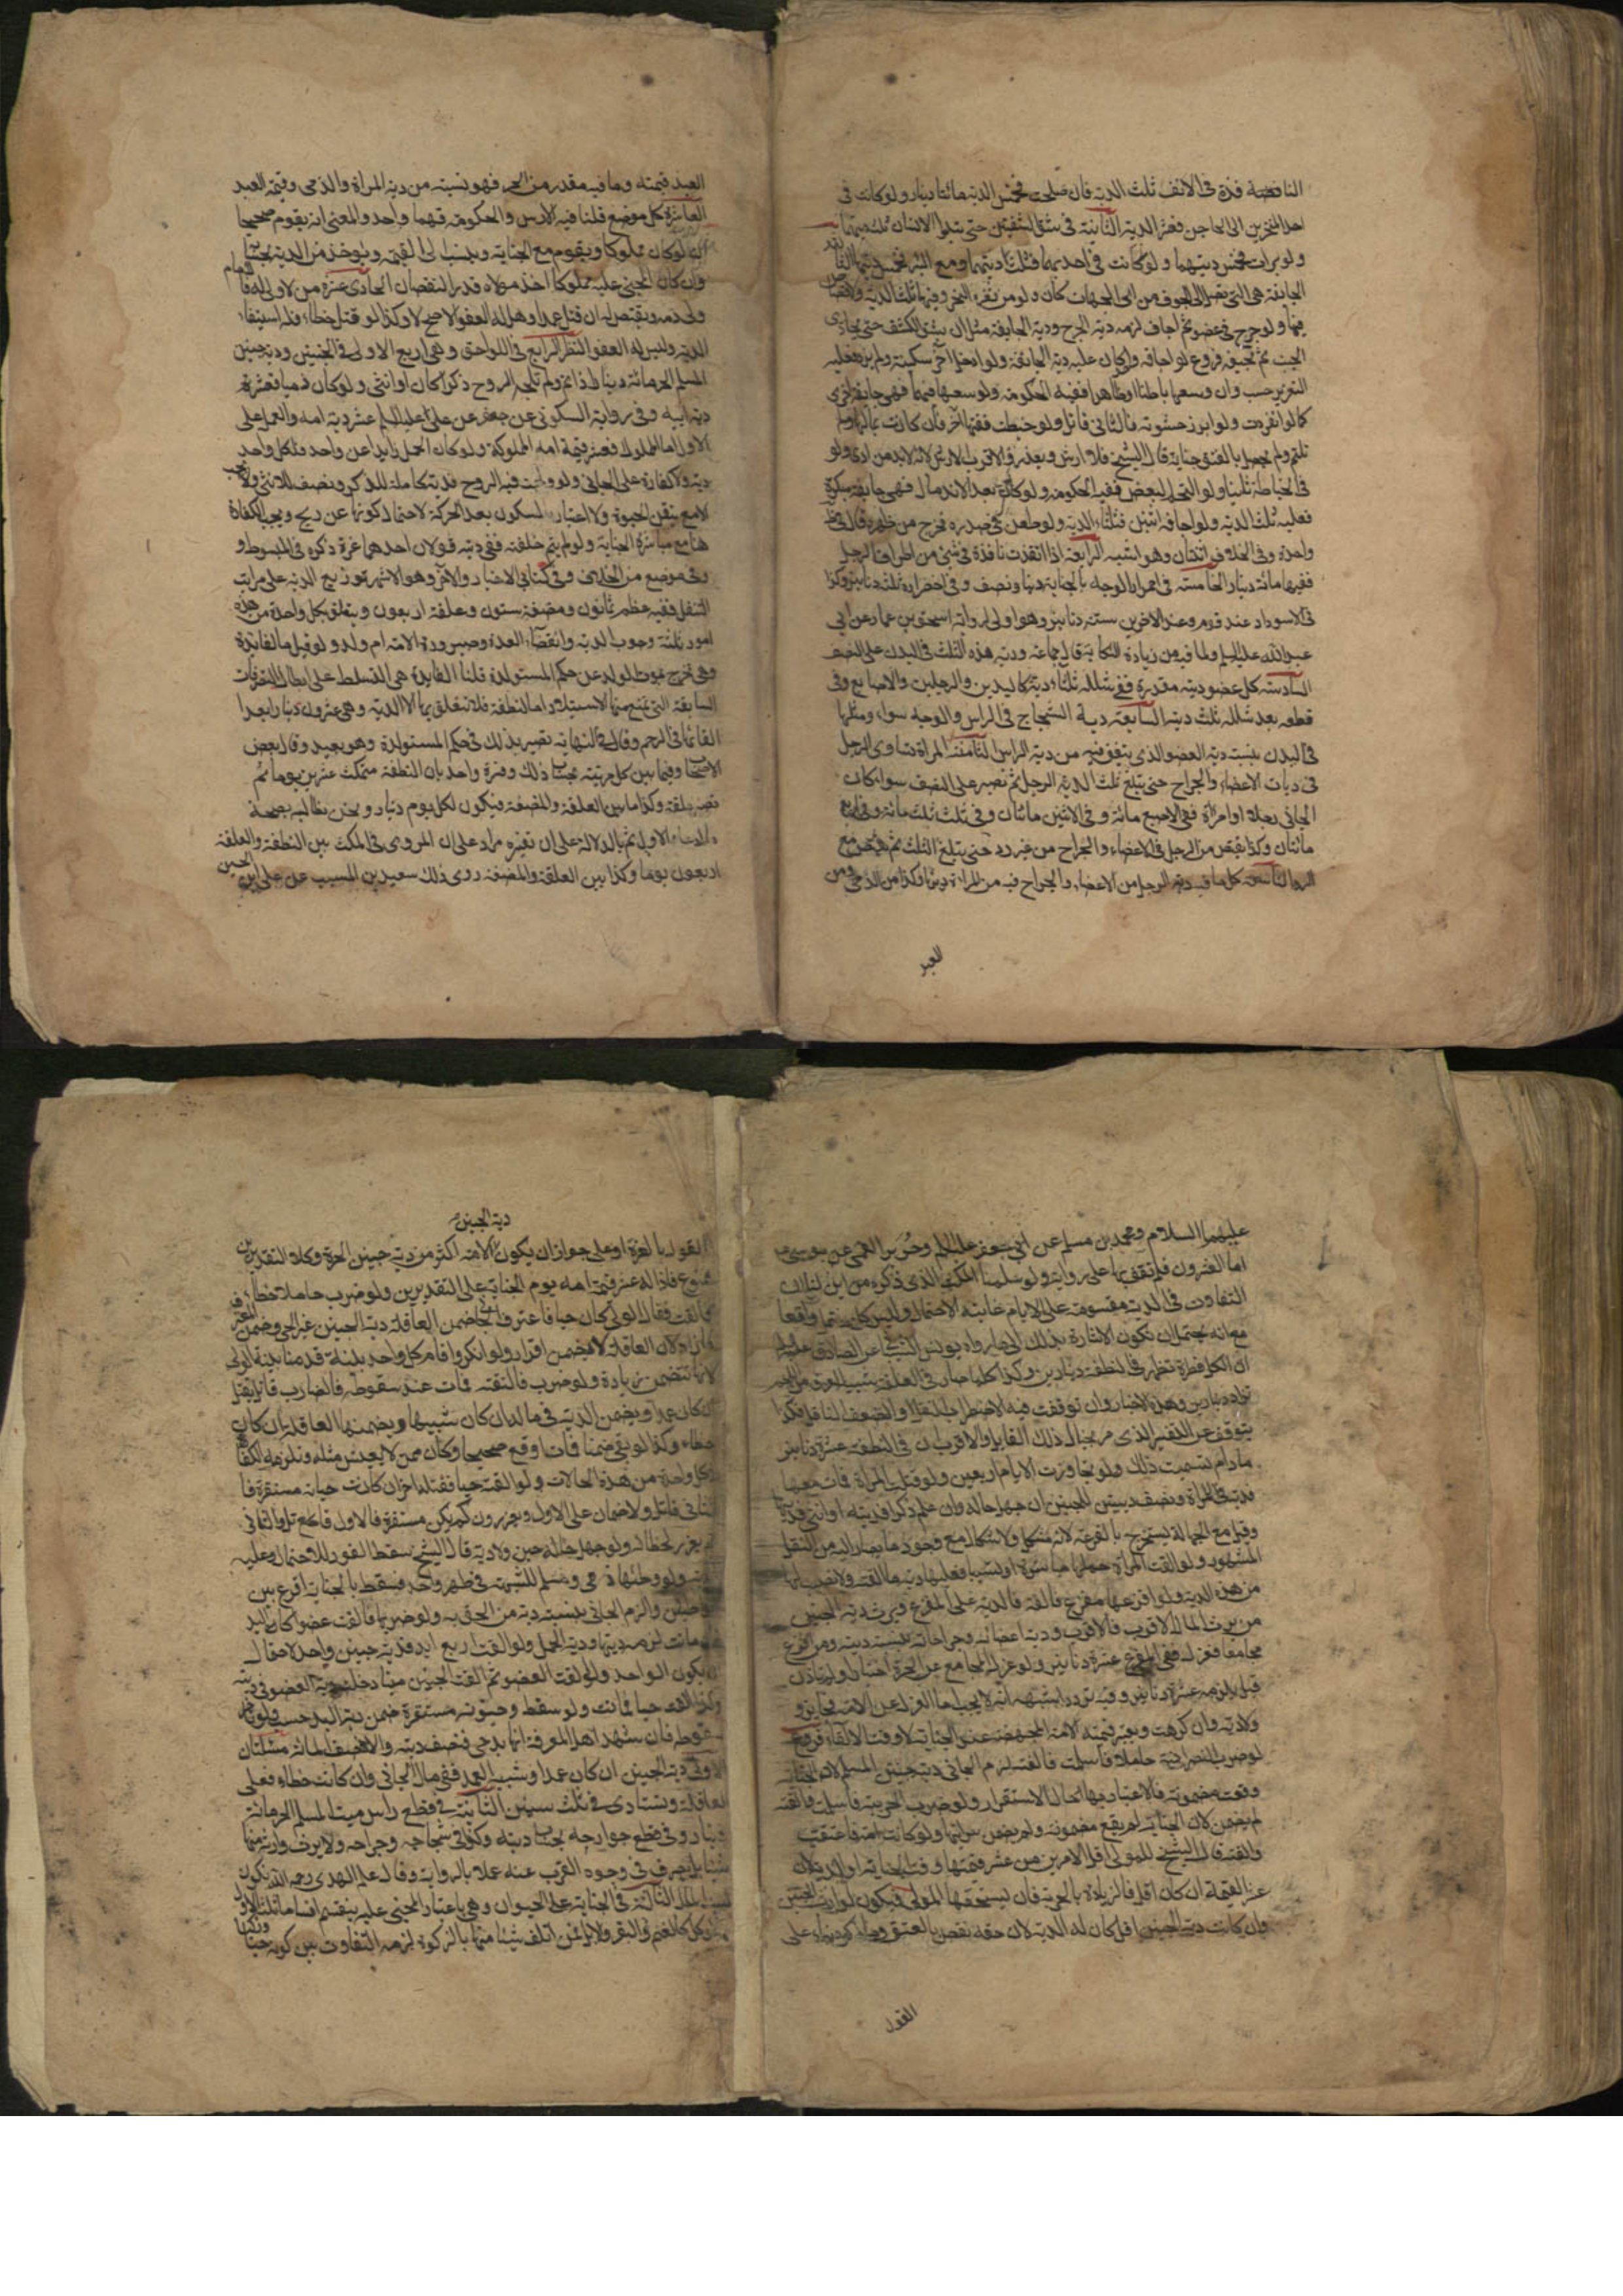 النافذة فذة فى الانف ثلث الدية فان صلحت فخمس الدية مائتا دينار ولو كانت فى
احد المنخرين الى الحاجز فعشر الدية الثانية فى شق الشفتين حتى تبدو الاسنان ثلث ديتهما
ولو برأت فخمس ديتهما ولو كانت فى احديهما فثلث ديتها ومع البرء فخمس ديتها الثالثة
الجايفة هى التى تصل الى الجوف من اى الجهات كان ولو من ثغرة النحر وفيها ثلث الدية ولا قصاص
فيها ولو جرح فى عضو ثم اجاف لزمه دية الجرح ودية الجايفة مثل ان يشق الكتف حتى يحاذى
الجنب ثم يجيفه فروع لو اجافه واحد كان عليه دية الجايفة ولو ادخل آخر سكينه ولم يزد فعليه
التعزير حسب وان وسعها باطنا او ظاهرا ففيه الحكومة ولو وسعها فيهما فهى جايفة اخرى
كما لو انفردت ولو ابرز حشوته فالثانى قاتل ولو خيطت ففتقها آخر فان كانت بحالها ولم
تلتئم ولم يحصل بالفتق جناية قال الشيخ فلا ارش ويعزر والاقرب الارش لانه لابد من اذى ولو
فى الخياطة ثانيا ولو التحم البعض ففيه الحكومة ولو كان بعد الاندمال فهى جايفة مبتكرة
فعليه ثلث الدية ولو اجافه اثنتين فثلثا الدية ولو طعن فى صدره فخرج من ظهره قال فى المبسوط
واحدة وفى الخلاف اثنتان وهو اشبه الرابعة اذا انفذت نافذة فى شئ من اطراف الرجل
ففيها مائة دينار الخامسة فى احمرار الوجه بالجناية دينار ونصف وفى اخضراره ثلثة دنانير وكذا
فى الاسوداد عند قوم وعند الاخرين ستة دنانير وهو اولى لرواية اسحق بن عمار عن ابى
عبد الله عليه السلم ولما فيه من زيادة النكاية قال جماعة ودية هذه الثلث فى البدن على النصف
السادسة كل عضو ديته مقدرة ففى شلله ثلثا ديته كاليدين والرجلين والاصابع وفى
قطعه بعد شلله ثلث ديته السابعة دية الشجاج فى الراس والوجه سواء ومثلها
فى البدن بنسبة دية العضو الذى يتفق فيه من دية الراس الثامنة المراة تساوى الرجل
فى ديات الاعضاء والجراح حتى تبلغ ثلث الدية الرجل ثم تصير على النصف سواء كان
الجانى رجلا او امراة ففى الاصبع مائة وفى الاثنين مائتان وفى ثلث ثلث مائة وفى اربع
مائتان وكذا يقتص من الرجل فى الاعضاء والجراح من غير رد حتى يبلغ الثلث ثم يقتص مع
الرد التاسعة كل ما فيه دية الرجل من الاعضاء والجراح فيه من المراة ديتها وكذا من الذمى ومن
العبد
العبد قيمته وما فيه مقدر من الحر فهو نسبته من دية المراة والذمى وقيمة العبد
العاشرة كل موضع قلنا فيه الارش والحكومة فهما واحد والمعنى انه يقوم صحيحا
ان لو كان مملوكا ويقوم مع الجناية وينسب الى القيمة ويؤخذ من الدية بحسابها
وان كان المجنى عليه مملوكا اخذ مولاه قدر النقصان الحادى عشرة من لا ولى له فالامام
ولى دمه ويقتص له ان قتل عمدا وهل له العفو الاصح لا وكذا لو قتل خطاء فله استيفاء
الدية وليس له العفو النظر الرابع فى اللواحق وهى اربع الاولى فى الجنين ودية جنين
المسلم الحر مائة دينار اذا تم ولم تلجه الروح ذكرا كان او انثى ولو كان ذميا فعشر
دية ابيه وفى رواية السكونى عن جعفر عن على عليه السلم عشر دية امه والعمل على
الاول اما المملوك فعشر قيمة امه المملوكة ولو كان الحمل زايدا عن واحد فلكل واحد
دية ولا كفارة على الجانى ولو ولجت فيه الروح فدية كاملة للذكر ونصف للانثى ولا تجب
الا مع تيقن الحيوة ولا اعتبار بالسكون بعد الحركة لاحتمال كونها عن ريح ويجب الكفارة
هنا مع مباشرة الجناية ولو لم يتم خلقته ففى ديته قولان احدهما غرة ذكره فى المبسوط و
وفى موضع من الخلاف وفى كتابى الاخبار والاخر وهو الاشهر توزيع الدية على مراتب
التنقل ففيه عظم ثمانون ومضغة ستون وعلقة اربعون ويتعلق بكل واحدة من هذه
امور ثلثة وجوب الدية وانقضاء العدة وصيرورة الامة ام ولد ولو قيل ما الفايدة
وهى تخرج بموت الولد عن حكم المستولدة قلنا الفايدة هى التسلط على ابطال التصرفات
السابقة التى تمنع منها الاستيلاد اما النطفة فلا تتعلق بها الا الدية وهى عشرون دينارا بعد
القائها فى الرحم وقال فى النهاية تصير بذلك فى حكم المستولدة وهو بعيد وقال بعض
الاصحاب وفيما بين كل مرتبة بحساب ذلك وفسره واحد بان النطفة تمكث عشرين يوما ثم
تصير علقة وكذا ما بين العلقة والمضغة فيكون لكل يوم دينار ونحن نطالبه بصحة
ما ادعاه الاول ثم بالدلالة على ان تفسيره مراد على ان المروى فى المكث بين النطفة والعلقة
اربعون يوما وكذا بين العلقة والمضغة روى ذلك سعيد بن المسيب عن على بن الحسين
عليهما السلام ومحمد بن مسلم عن ابى جعفر عليه السلم وجرير القمى عن موسى
اما العشرون فلم نقف بها على رواية ولو سلمنا المكث الذى ذكره من اين لنا ان
التفاوت فى الدية مقسوم على الايام غايته الاحتمال وليس كل محتمل واقعا
مع انه يحتمل ان تكون الاشارة بذلك الى ما رواه يونس الشيبانى عن الصادق عليه السلم
ان لكل قطرة تظهر فى النطفة دينارين وكذا كلما صار فى العلقة شبيه العرق من اللحم
يزاد دينارين وهذه الاخبار وان توقفت فيه لاضطراب النقل او لضعف الناقل فكذا
يتوقف عن التفسير الذى مر بخيال ذلك القايل
ولو قتلت المراة فمات معها
فدية للمراة ونصف ديتين للجنين ان جهل حاله وان علم ذكرا فديته او انثى فديتها
وقيل مع الجهالة يستخرج بالقرعة لانه مشكل ولا اشكال مع وجود ما يصار اليه من النقل
المشهور ولو القت المراة حملها مباشرة او تسبيبا فعليها دية ما القته ولا نصيب لها
من هذه الدية ولو افزعها مفزع فالقته فالدية على المفزع ويرث دية الجنين
من يرث المال الاقرب فالاقرب ودية اعضائه وجراحاته بنسبة ديته ومن افزع
مجامعا فعزل فعلى المفزع عشرة دنانير ولو عزل المجامع عن الحرة اختيارا ولم تاذن
قيل يلزمه عشرة دنانير وفيه تردد اشبهه انه لا يجب اما العزل عن الامة فجايز و
ولا دية وان كرهت ويعتبر قيمة الامة المجهضة عند الجناية لا وقت الالقاء فروع
لو ضرب النصرانية حاملا فاسلمت فالقته لزم الجانى دية جنين المسلم لان الجناية
وقعت مضمونة فالاعتبار بها بحال الاستقرار ولو ضرب الحربية فاسلمت فالقته
لم يضمن لان الجناية لم يقع مضمونة فلم يضمن سرايتها ولو كانت امة فاعتقت
والقته قال الشيخ للمولى اقل الامرين من عشر قيمتها وقت الجناية او الدية لان
عشر القيمة ان كان اقل فالزيادة بالحرية فلا يستحقها المولى فيكون لوارث الجنين
وان كانت دية الجنين اقل كان له الدية لان حقه نقص بالعتق وما ذكره بناء على
القول
دية الجنين
القول بالغرة او على جواز ان يكون الامة اكثر من دية جنين الحرة وكلا التقديرين
ممنوع فاذا له عشر قيمة امه يوم الجناية على التقديرين ولو ضرب حاملا خطأ
فالقت فقال الولى كان حيا فاعترف الجانى ضمن العاقلة دية الجنين غير الحى وضمن المعترف
ما زاد لان العاقلة لا تضمن اقرارا ولو انكر واقام كل واحد بينة قدمنا بينة الولى
لانها تتضمن زيادة ولو ضرب فالقته فمات عند سقوطه فالضارب قاتل يقتل
ان كان عمدا ويضمن الدية فى ماله ان كان شبيها ويضمنها العاقلة ان كان
خطاء وكذا لو بقى ضمنا فمات او وقع صحيحا وكان ممن لا يعيش مثله وتلزمه الكفارة
كل واحدة من هذه الحالات ولو القته حيا فقتله اخر فان كانت حياته مستقرة فا
لثانى قاتل ولا ضمان على الاول ويعزر وان لم يكن مستقرة فالاول قاتل والثانى
يعزر لخطائه ولو جهل حاله حين ولادته قال الشيخ سقط القود للاحتمال وعليه
الدية ولو وطئها ذمى ومسلم للشبهة فى طهر واحد فسقط بالجناية اقرع بين
الواطئين والزم الجانى بنسبة دية من الحق به ولو ضربها فالقت عضوا كاليد
فان ماتت لزمه ديتها ودية الحمل ولو القت اربع ايد فدية جنين واحد لاحتمال
ان يكون الواحد ولو القت العضو ثم القت الجنين ميتا دخلت دية العضو فى ديته
وكذا لو القته حيا فمات ولو سقط وحيوته مستقرة ضمن دية اليد حسب ولو تاخر
سقوطه فان شهد اهل المعرفة انها يد حى فنصف ديته والا فنصف المائة مسئلتان
الاولى دية الجنين ان كان عمدا او شبيه العمد ففى مال الجانى وان كانت خطاء فعلى
العاقلة وتستادى فى ثلث سنين الثانية فى قطع راس ميت المسلم الحر مائة
دينار وفى قطع جوارحه بحساب ديته وكذا فى شجاجه وجراحه ولا يرث وارثه منها
شيئا بل تصرف فى وجوه القرب عنه عملا بالرواية وقال علم الهدى رحمه الله يكون
لبيت المال الثالثة فى الجناية على الحيوان وهى باعتبار المجنى عليه ينقسم اقساما ثلثة الاول
ما يوكل كالغنم والبقر والابل فمن اتلف شيئا منها بالزكوة لزمه التفاوت بين كونه حيا